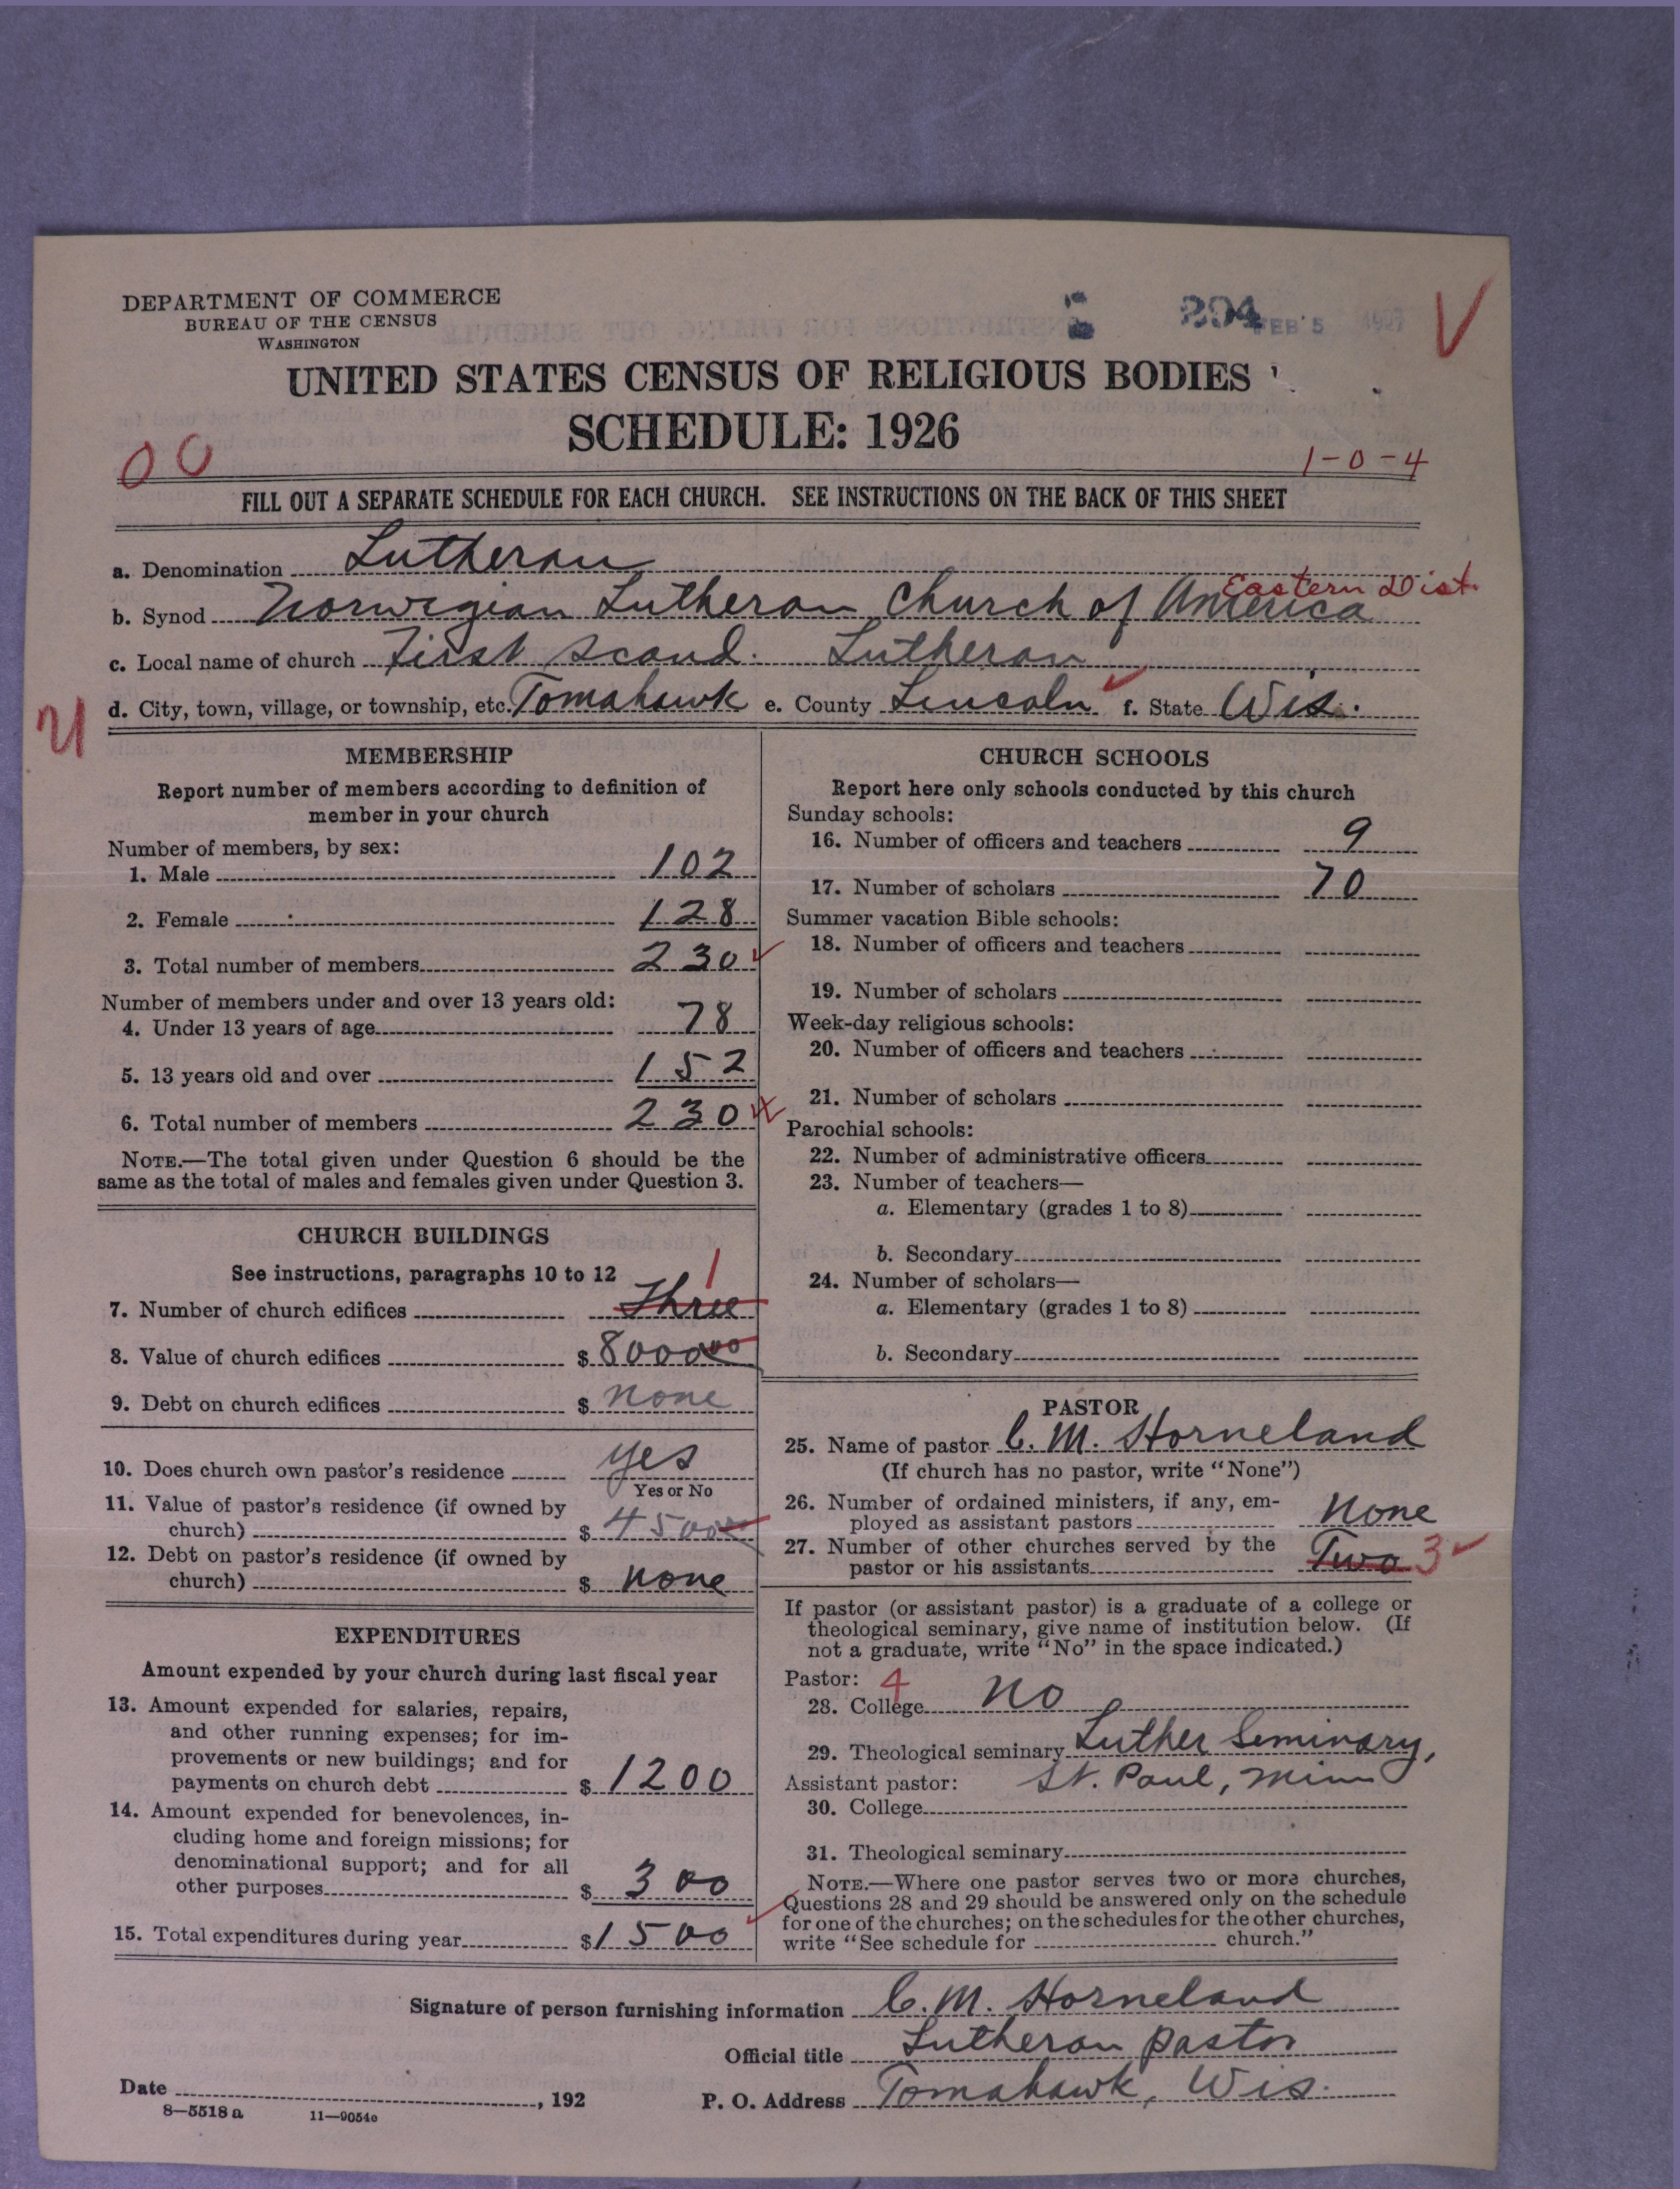 DEPARTMENT OF COMMERCE
BUREAU OF THE CENSUS
WASHINGTON
294 FEB 5 1927
V
UNITED STATES CENSUS OF RELIGIOUS BODIES
SCHEDULE: 1926
00
1-0-4
FILL OUT A SEPARATE SCHEDULE FOR EACH CHURCH. SEE INSTRUCTIONS ON THE BACK OF THIS SHEET
a. Denomination Lutheran
Eastern Dist.
b. Synod Norwegian Lutheran Church of America
c. Local name of church First Scand. Lutheran
d. City, town, village, or township, etc. Tomahawk e. County Lincoln f. State Wis.
MEMBERSHIP
Report number of members according to definition of
member in your church
Number of members, by sex:
1. Male 102
2. Female 128
3. Total number of members 230
Number of members under and over 13 years old:
4. Under 13 years of age 78
5. 13 years old and over 152
6. Total number of members 230
NOTE.—The total given under Question 6 should be the
same as the total of males and females given under Question 3.
CHURCH BUILDINGS
See instructions, paragraphs 10 to 12
1
7. Number of church edifices Three
8. Value of church edifices $ 8000 00
9. Debt on church edifices $ none
10. Does church own pastor's residence yes
Yes or No
11. Value of pastor's residence (if owned by
church) $ 4500
12. Debt on pastor's residence (if owned by
church) $ none
EXPENDITURES
Amount expended by your church during last fiscal year
13. Amount expended for salaries, repairs,
and other running expenses; for im-
provements or new buildings; and for
payments on church debt $ 1200
14. Amount expended for benevolences, in-
cluding home and foreign missions; for
denominational support; and for all
other purposes $ 300
15. Total expenditures during year $ 1500
CHURCH SCHOOLS
Report here only schools conducted by this church
Sunday schools:
16. Number of officers and teachers 9
17. Number of scholars 70
Summer vacation Bible schools:
18. Number of officers and teachers
19. Number of scholars
Week-day religious schools:
20. Number of officers and teachers
21. Number of scholars
Parochial schools:
22. Number of administrative officers
23. Number of teachers—
a. Elementary (grades 1 to 8)
b. Secondary
24. Number of scholars—
a. Elementary (grades 1 to 8)
b. Secondary
PASTOR
25. Name of pastor C. M. Horneland
(If church has no pastor, write "None")
26. Number of ordained ministers, if any, em-
ployed as assistant pastors None
27. Number of other churches served by the
pastor or his assistants Two 3
If pastor (or assistant pastor) is a graduate of a college or
theological seminary, give name of institution below. (If
not a graduate, write "No" in the space indicated.)
Pastor: 4
28. College no
29. Theological seminary Luther Seminary,
Assistant pastor: St. Paul, Minn
30. College
31. Theological seminary
NOTE.—Where one pastor serves two or more churches,
Questions 28 and 29 should be answered only on the schedule
for one of the churches; on the schedules for the other churches,
write "See schedule for church."
Signature of person furnishing information C. M. Horneland
Official title Lutheran pastor
Date , 192 P. O. Address Tomahawk, Wis.
8—5518 a 11—9054c